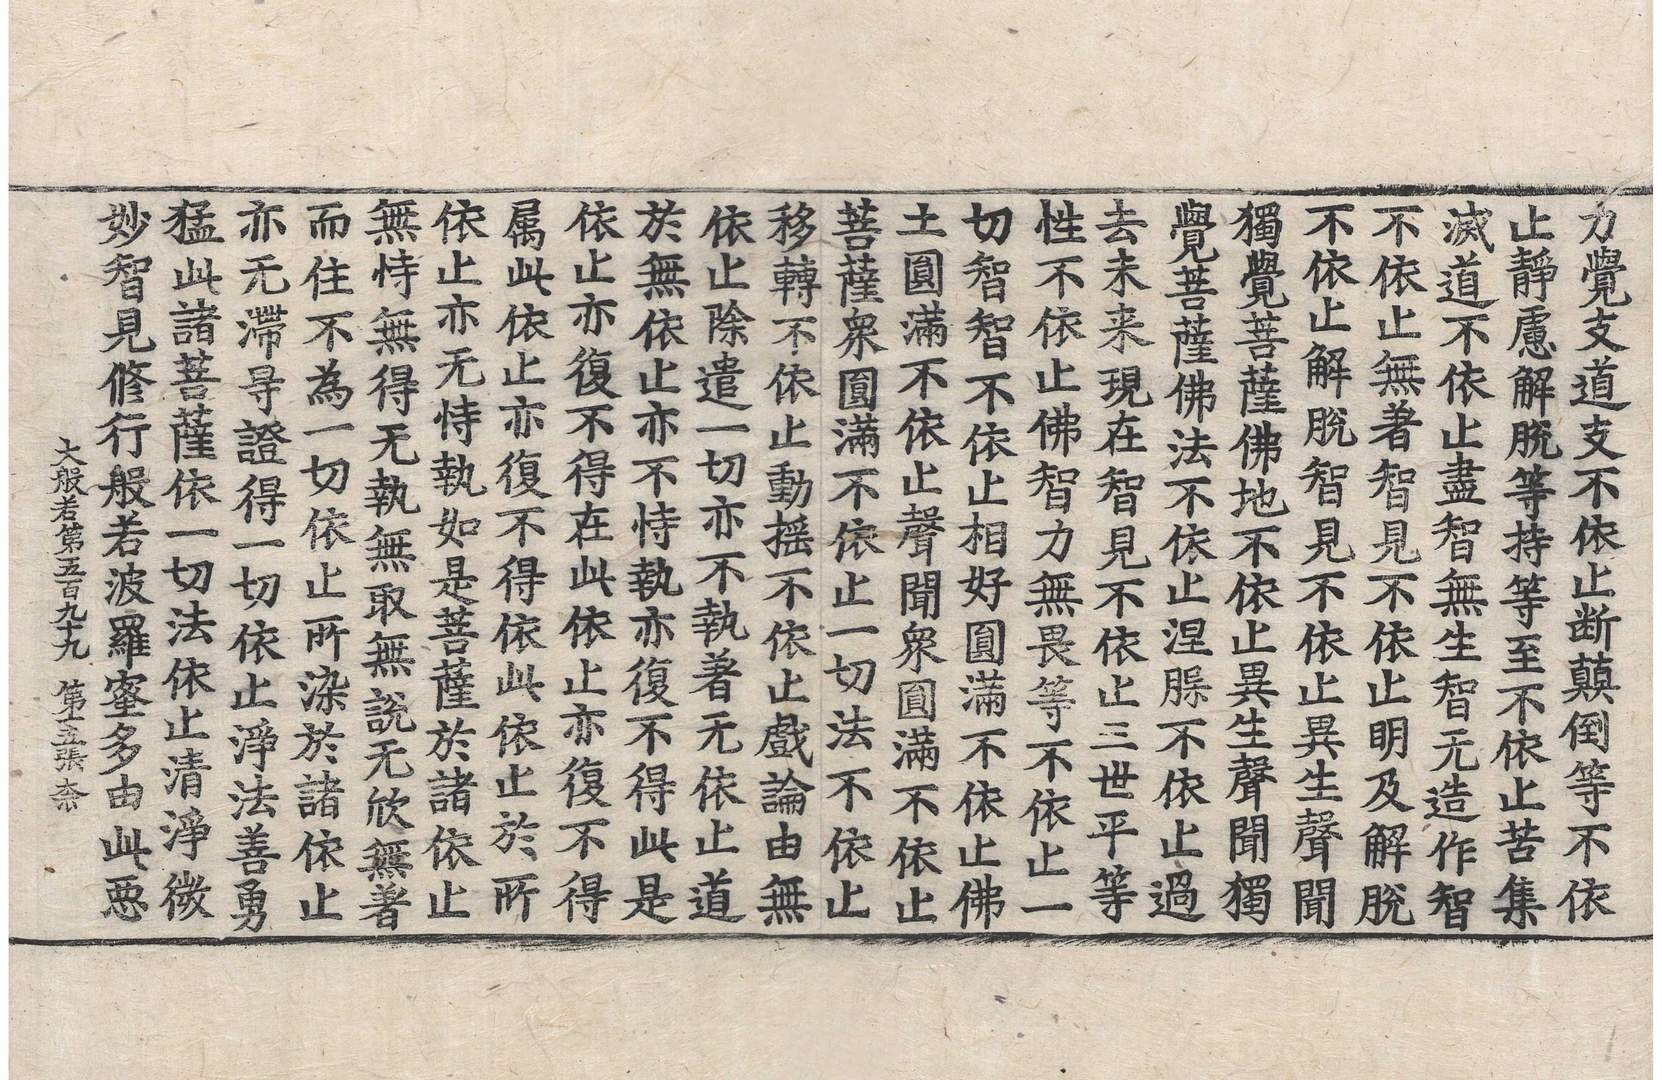 力覺支道支不依止断顛倒等不依
止靜慮解脫等持等至不依止苦集
滅道不依止盡智無生智无造作智
不依止無著智見不依止明及解脫
不依止解脫智見不依止異生聲聞
獨覺菩薩佛地不依止異生聲聞獨
覺菩薩佛法不依止涅槃不依止過
去未来現在智見不依止三世平等
性不依止佛智力無畏等不依止一
切智智不依止相好圓滿不依止佛
土圓滿不依止聲聞眾圓滿不依止
菩薩眾圓滿不依止一切法不依止
移轉不依止動摇不依止戲論由無
依止除遣一切亦不執著无依止道
於無依止亦不恃執亦復不得此是
依止亦復不得在此依止亦復不得
属此依止亦復不得依此依止於所
依止亦无恃執如是菩薩於諸依止
無恃無得无執無取無說无欣無著
而住不為一切依止所染於諸依止
亦无滯㝵證得一切依止淨法善勇
猛此諸菩薩依一切法依止清淨微
妙智見修行般若波羅蜜多由此惡
大般若第五百九十九 第十五張 柰